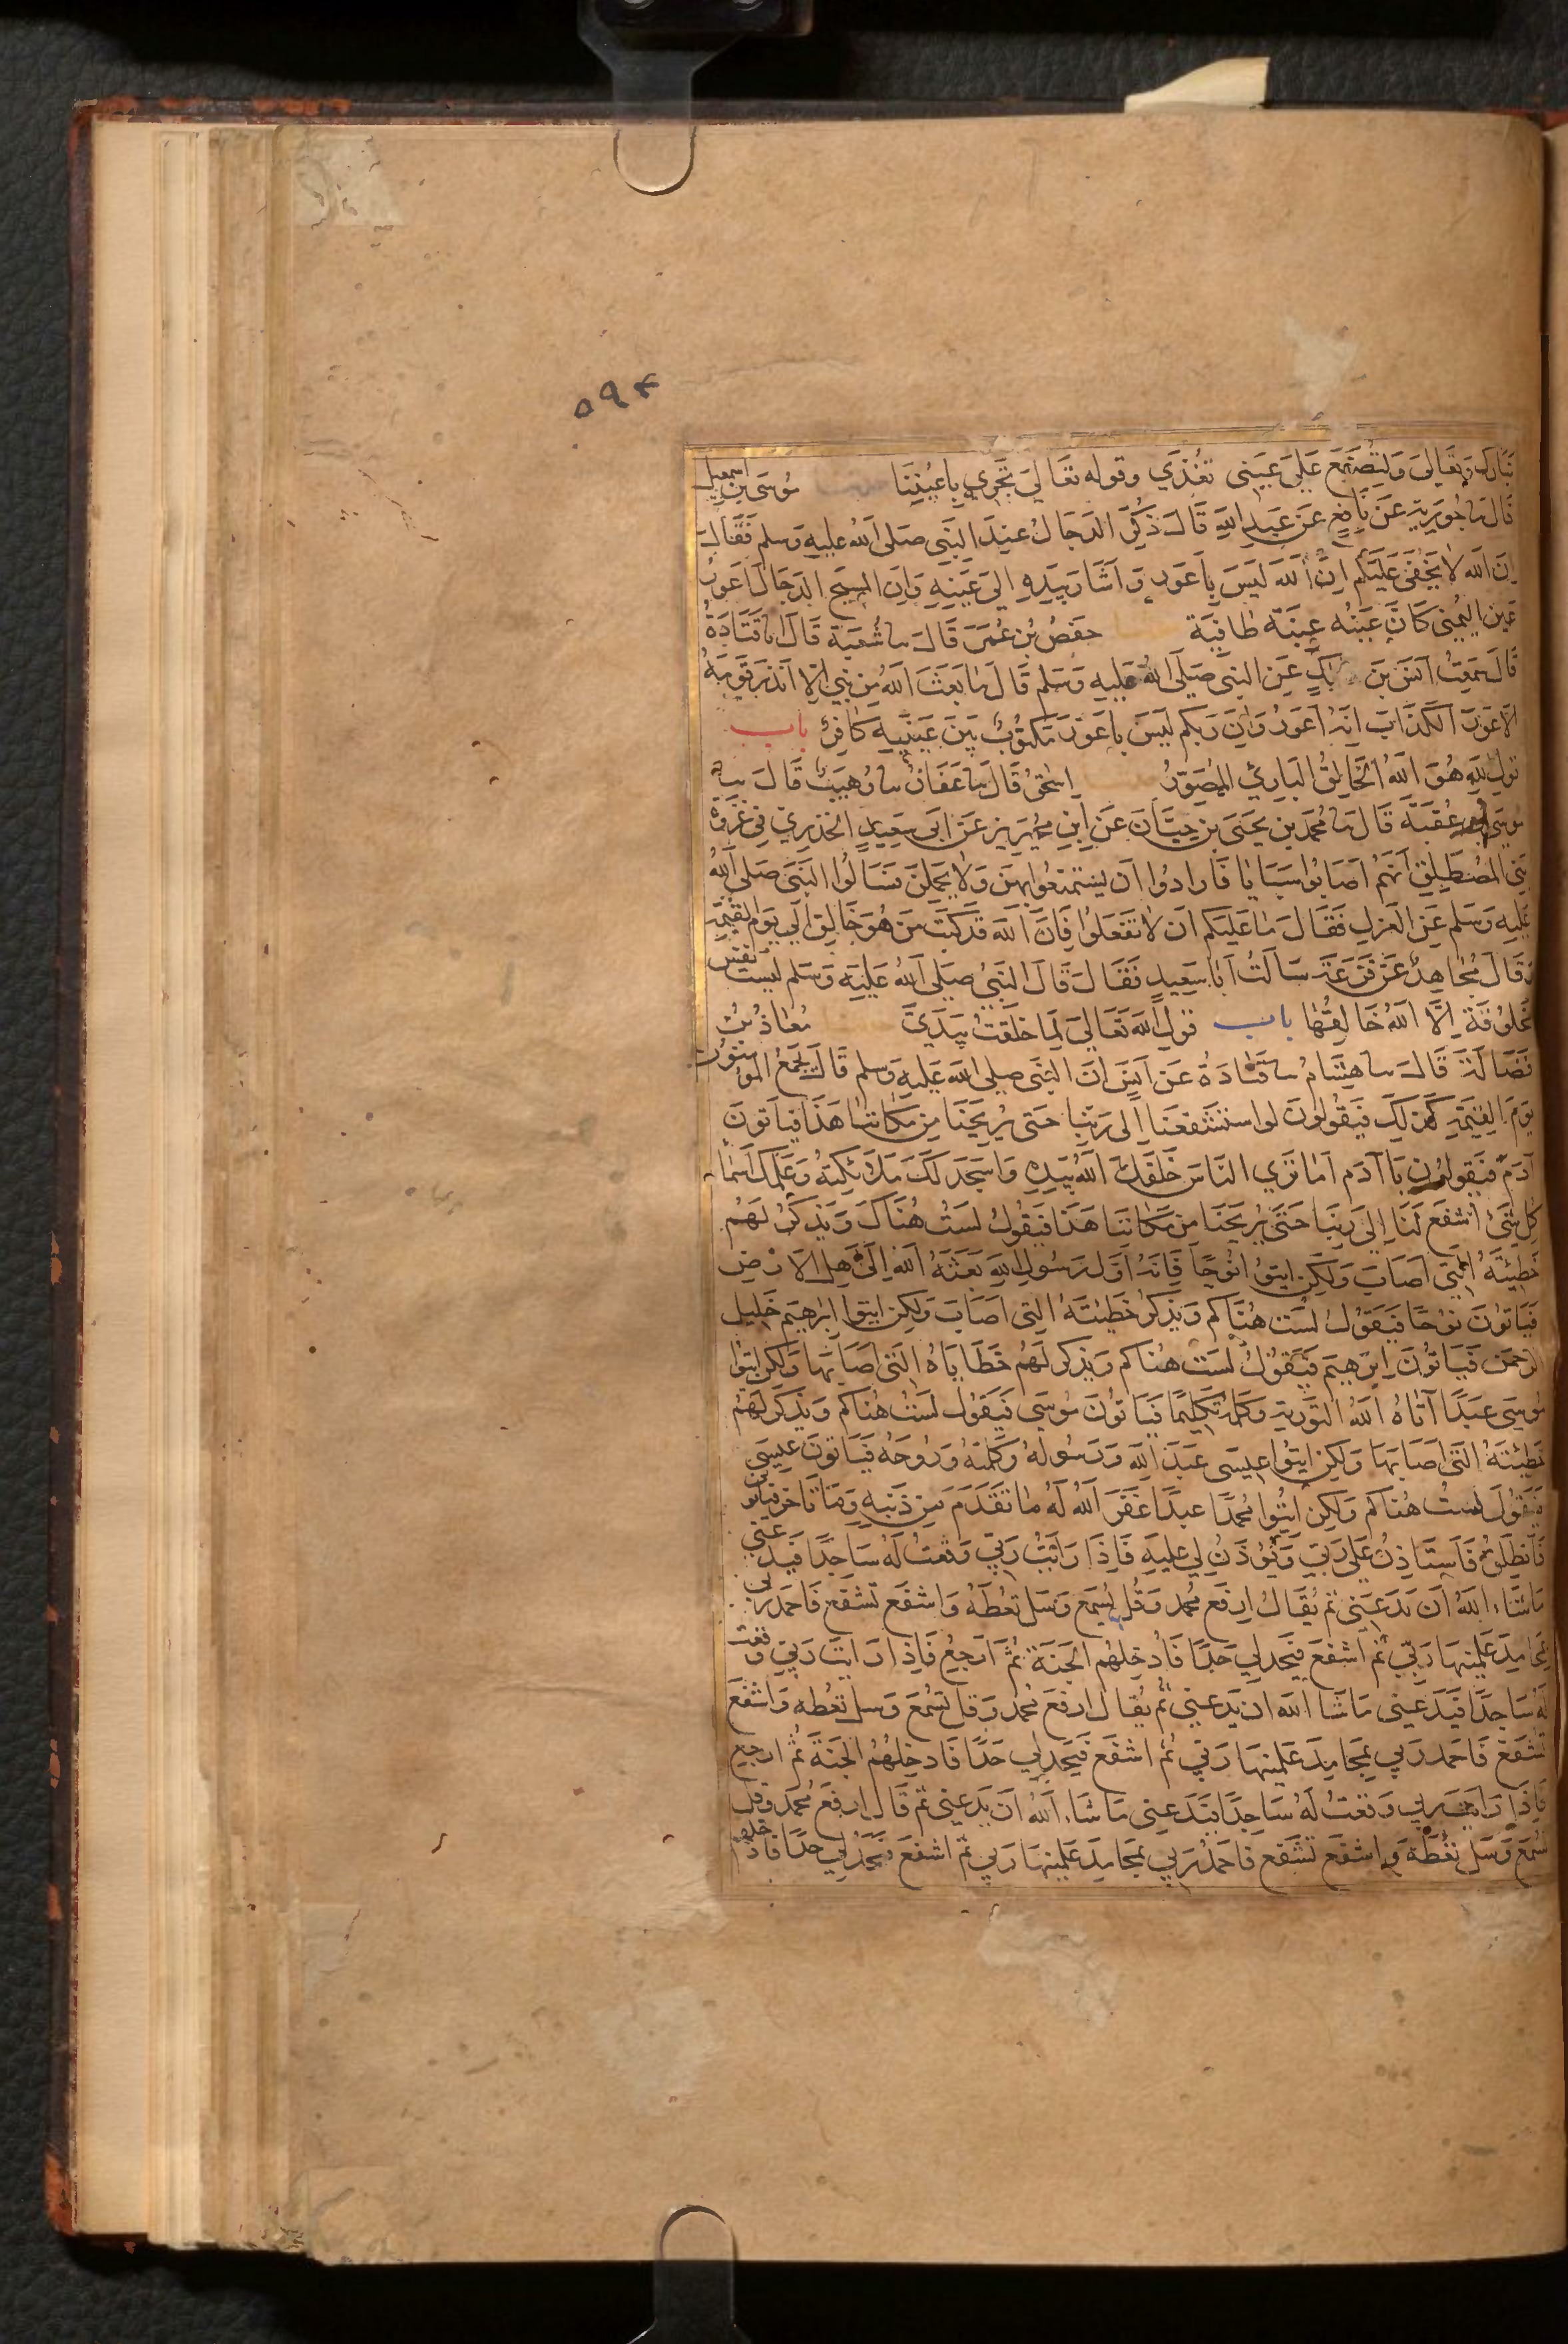 ۵۹۴
تبارك وتعالى ولتصنع على عيني تغذى وقوله تعالى تجري باعيننا موسى بن اسمعيل
قال نا جويرية عن نافع عن عبد الله قال ذكر الدجال عند النبي صلى الله عليه وسلم فقال
ان الله لا يخفى عليكم ان الله ليس باعور واشار بيده الى عينه وان المسيح الدجال اعور
عين اليمنى كان عينه عنبة طافية حفص بن عمر قال نا شعبة قال انا قتادة
قال سمعت انس بن عن النبي صلى الله عليه وسلم قال ما بعث الله من نبي الا انذر قومه
الاعور الكذاب انه اعور وان ربكم ليس باعور مكتوب بين عينيه كافر باب
قول الله هو الله الخالق البارئ المصور اسحق قال نا عفان نا وهيب قال نا
موسى بن عقبة قال نا محمد بن يحيى بن حبان عن ابن محيريز عن ابي سعيد الخدري في غزوة
بني المصطلق انهم اصابوا سبايا فارادوا ان يستمتعوا بهن ولا يحملن فسالوا النبي صلى الله
عليه وسلم عن العزل فقال ما عليكم ان لا تفعلوا فان الله قد كتب من هو خالق الى يوم القيمة
وقال مجاهد عن قزعة سالت ابا سعيد فقال قال النبي صلى الله عليه وسلم ليست نفس
مخلوقة الا الله خالقها باب قول الله تعالى لما خلقت بيدي معاذ بن
فضالة قال نا هشام نا قتادة عن انس ان النبي صلى الله عليه وسلم قال يجمع المومنون
يوم القيمة كذلك فيقولون لو استشفعنا الى ربنا حتى يريحنا من مكاننا هذا فياتون
آدم فيقولون يا آدم اما ترى الناس خلقك الله بيده واسجد لك ملائكته وعلمك اسماء
كل شئ اشفع لنا الى ربنا حتى يريحنا من مكاننا هذا فيقول لست هناك ويذكر لهم
خطيئته التي اصاب ولكن ايتوا نوحا فانه اول رسول الله بعثه الله الى اهل الارض
فياتون نوحا فيقول لست هناكم ويذكر خطيئته التي اصاب ولكن ايتوا ابراهيم خليل
الرحمن فياتون ابرهيم فيقول لست هناكم ويذكر لهم خطاياه التي اصابها ولكن ايتوا
موسى عبدا آتاه الله التورية وكلمه تكليما فياتون موسى فيقول لست هناكم ويذكر لهم
خطيئته التي اصابها ولكن ايتوا عيسى عبد الله ورسوله وكلمته وروحه فياتون عيسى
فيقول لست هناكم ولكن ايتوا محمدا عبدا غفر الله له ما تقدم من ذنبه وما تاخر فياتوني
فانطلق فاستاذن على ربي ويؤذن لي عليه فاذا رايت ربي وقعت له ساجدا فيدعني
ما شاء الله ان يدعني ثم يقال ارفع محمد وقل يسمع وسل تعطه واشفع تشفع فاحمد ربي
بمحامد علمنيها ربي ثم اشفع فيحد لي حدا فادخلهم الجنة ثم ارجع فاذا رايت ربي وقعت
له ساجدا فيدعني ما شا الله ان يدعني ثم يقال ارفع محمد وقل تسمع وسل تعطه واشفع
تشفع فاحمد ربي بمحامد علمنيها ربي ثم اشفع فيحد لي حدا فادخلهم الجنة ثم ارجع
فاذا رايت ربي وقعت له ساجدا فيدعني ما شاء الله ان يدعني ثم قال ارفع محمد وقل
تسمع وسل تعطه واشفع تشفع فاحمد ربي بمحامد علمنيها ربي ثم اشفع فيحد لي حدا فادخلهم